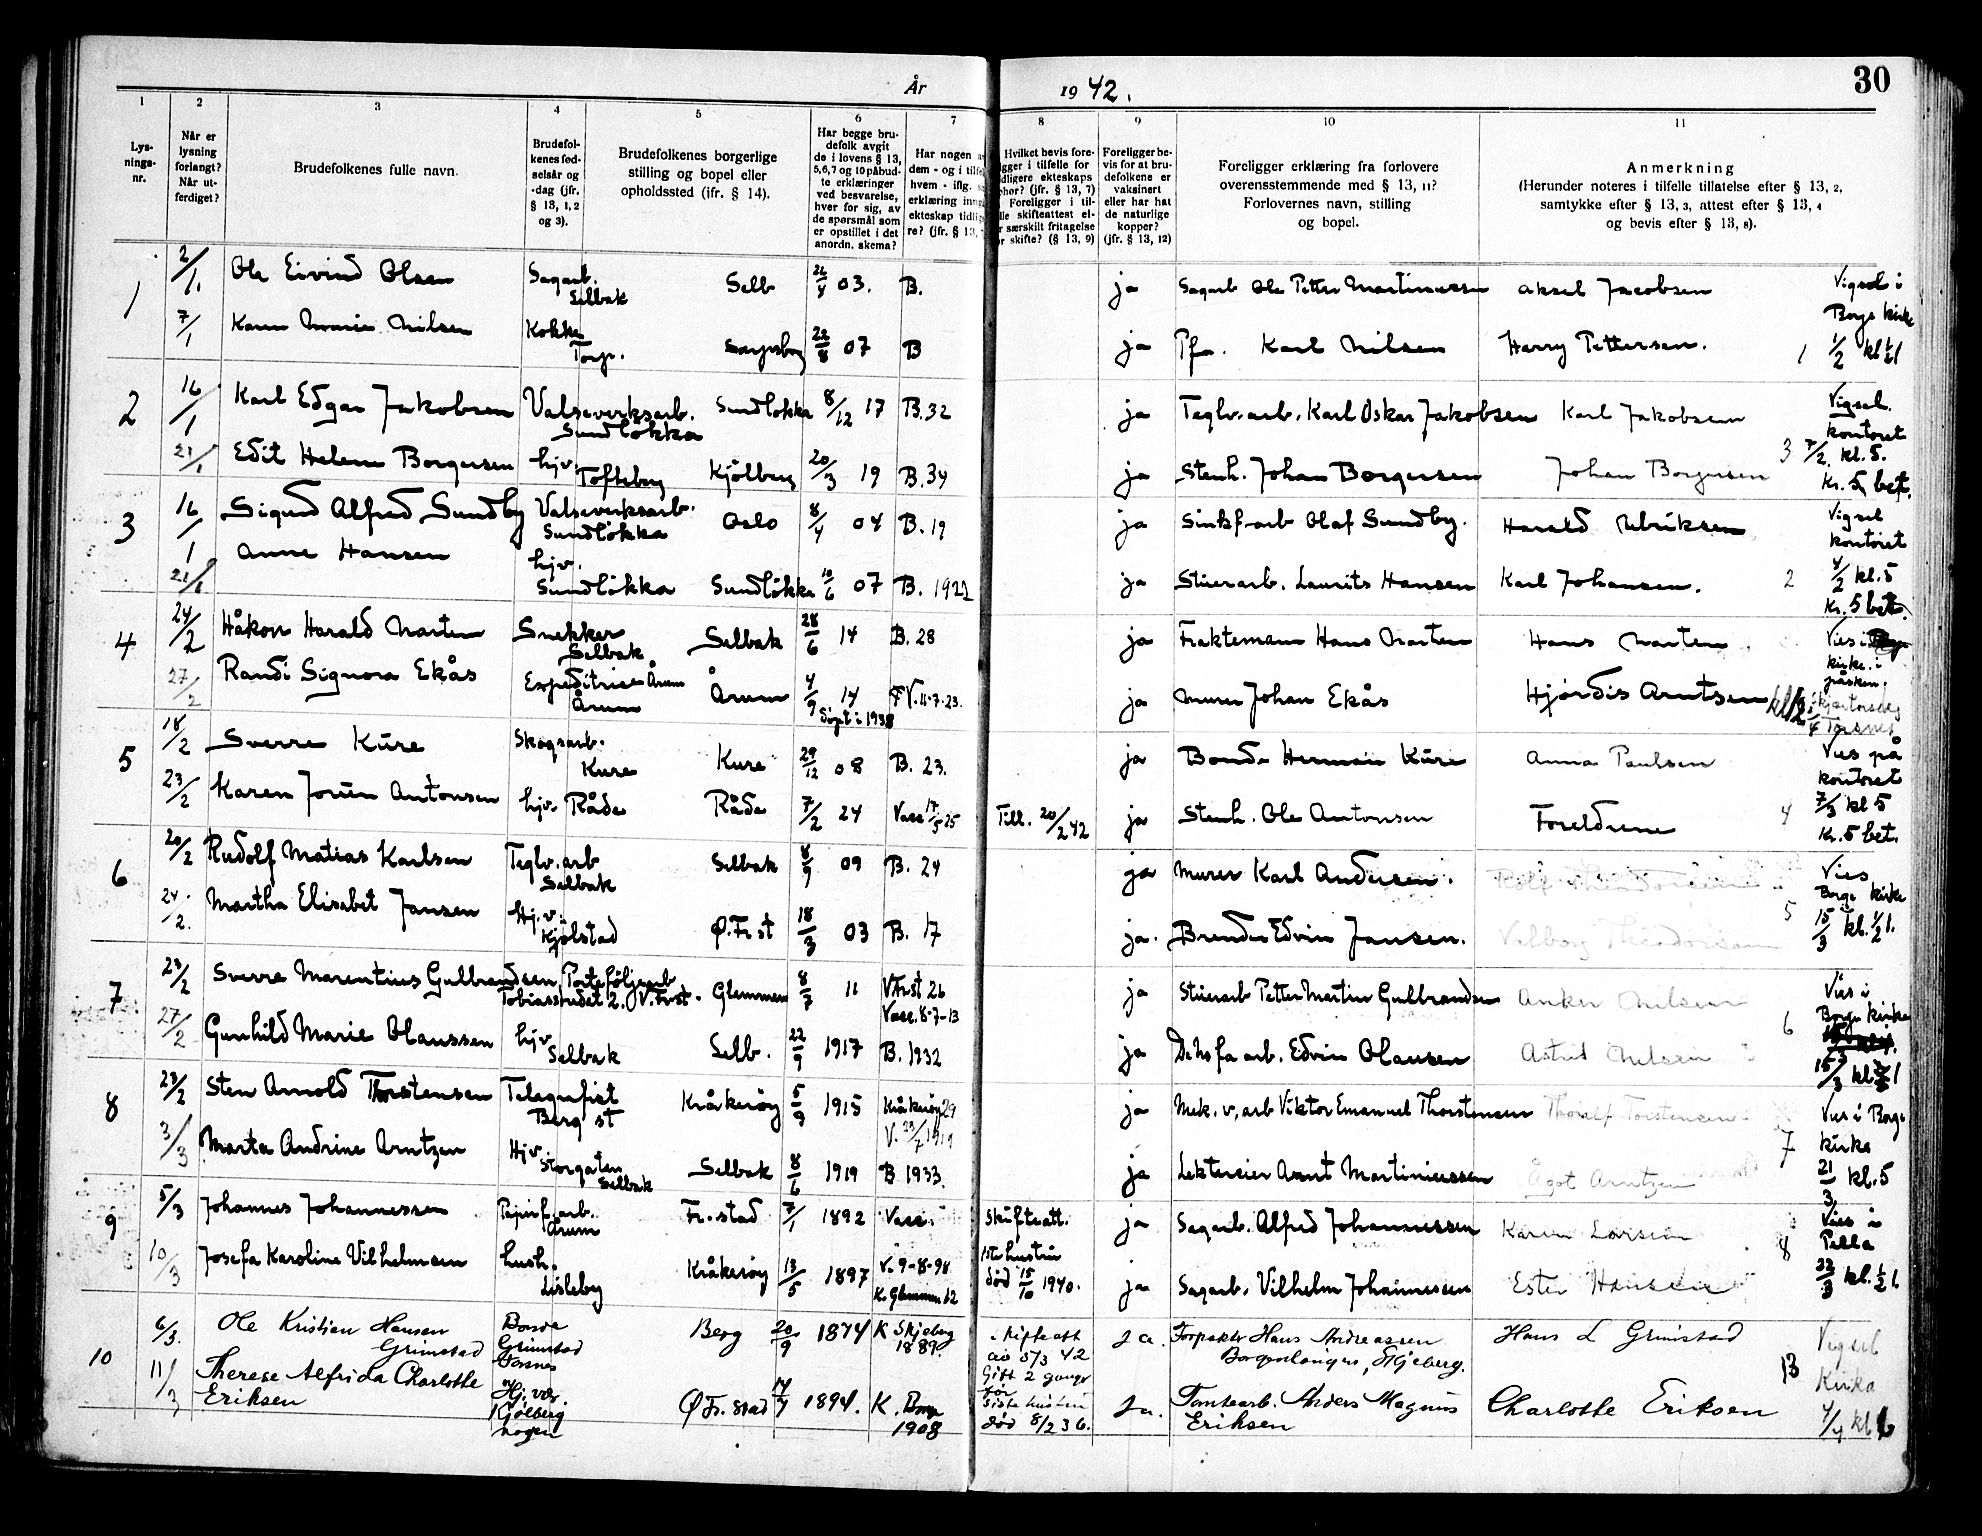 År 1942.
30
1 2 3 4 5 6 7 8 9 10 11
Lysnings-nr.
Når er lysning forlangt? Når utferdiget?
Brudefolkenes fulle navn.
Brudefolkenes fødselsår og -dag (jfr. § 13, 1, 2 og 3).
Brudefolkenes borgerlige stilling og bopel eller opholdssted (ifr. § 14).
Har begge brudefolk avgit de i lovens § 13, 5, 6, 7 og 10 påbudte erklæringer ved besvarelse, hver for sig, av de spørsmål som er opstillet i det anordn. skema?
Har nogen
dem - og i tilfe
hvem - iflg.
erklæring inng
ekteskap tidlig
re? (jfr. § 13,
Hvilket bevis fore-
gger i tilfelle for
dligere ekteskaps
phør? (jfr. § 13, 7)
Foreligger i til-
lle skifteattest el-
r særskilt fritagelse
or skifte? (§ 13, 9)
Foreligger bevis for at brudefolkene er vaksinert eller har hat de naturlige kopper? (jfr. § 13, 12)
Foreligger erklæring fra forlovere overensstemmende med § 13, 11? Forlovernes navn, stilling og bopel.
Anmerkning
(Herunder noteres i tilfelle tillatelse efter § 13, 2, samtykke efter § 13, 3, attest efter § 13, 4 og bevis efter § 13, 8).
1 2/1. Ole Eivind Olsen Sagarb. Selbak Selb 22/4 03. B. ja Sagarb Ole Petter Martinussen Aksel Jacobsen Vigsel i Borge kirke
7/1 Karen Marie Nilsen Kokke Torp. Sarpsborg 22/8 07 B ja Pfa. Karl Nilsen Harry Pettersen. 1 1/2 kl ½1
2 16/1 Karl Edgar Jakobsen Valseverksarb. Sundløkka Sundløkka 8/12 17 B. 32 ja Teglv.arb. Karl Oskar Jakobsen Karl Jakobsen Vigsel. kontoret
21/1 Edit Helene Borgersen hjv. Tofteberg Kjølberg 20/3 19 B. 34 ja Stenh. Johan Borgersen Johan Borgersen 3 7/2. kl. 5. Kr. 5 bet.
3 16/1 Sigurd Alfred Sundby Valseverksarb. Sundløkka Oslo 8/4 04 B. 19 ja Sinkf.arb Olaf Sundby. Harald Ulriksen Vigsel kontoret
21/1 Anne Hansen hjv. Sundløkka Sundløkka 10/6 07 B. 1922 ja Stuerarb. Laurits Hansen Karl Johansen. 2 4/2 kl. 5 Kr. 5 bet.
4 24/2 Håkon Harald Marten Snekker Selbak Selbak 28/6 14 B. 28 ja Fraktemann Hans Marten Hans Marten Vies i kirke. i påsken.
27/2 Randi Signora Ekås Expeditrise Årum Årum Årum 4/9 14 Døpt i 1938 V. 11-7-23. ja Murer Johan Ekås Hjørdis Arntsen Skjærtorsdag Torsnes
5 18/2 Sverre Kure Skogsarb. Kure Kure 29/12 08 B. 23. ja Bonde Herman Kure Anna Paulsen Vies på kontoret
23/2 Karen Jorun Antonsen hjv. Råde Råde 7/2 24 Vacc 17/5 25 Till. 20/2 42 ja Stenh. Ole Antonsen Foreldrene 4 7/3 kl 5 Kr. 5 bet.
6 20/2 Rudolf Matias Karlsen Teglv. arb Selbak Selbak 8/9 09 B. 24 ja Murer Karl Andersen. Vies Borge kirke
24/2. Martha Elisabet Jansen Hj.v. Kjølstad Ø. Fr st 18/3 03 B. 17 ja. Edvin Jansen. Valborg Theodorsen 5 15/3 kl. ½1.
7 23/2 Sverre Marentius Gulbrandsen, Porteføljearb Tobiasstredet 2. V. Frst. Glemmen 8/7 11 V Frst 26 Vacc. 8-7-13 ja Stuerarb Petter Martin Gulbrandsen Anker Nilsen Vies i Borge kirke
27/2 Gunhild Marie Olaussen hjv. Selbak Selb. 22/9 1917 B. 1932 ja Dehofa arb. Edvin Olausen Astrid Nilsen 6 15/3 kl. ½1
8 23/2 Sten Arnold Thorstensen Telegrafist Berg st Kråkerøy 5/9 1915 Kråkerøy 29 V. 23/7 1919 ja Mek. v. arb Viktor Emanuel Thorstensen Thoralf Torstensen Vies i Borge kirke
3/3 Marta Andrine Arntzen Hjv. Storgaten Selbak Selbak 8/6 1919 B 1933. ja Lektereier Arnt Martiniussen Ågot Arntzen 7 21/3 kl. 5
9 5/3 Johannes Johannessen Papirf.arb. Årum Fr.stad 7/1 1892 Vacc. Skifteatt. ja Sagarb. Alfred Johannessen Karen Larsen Vies i Pella
10/3 Josefa Karoline Vilhelmsen hush. Lisleby Kråkerøy 13/5 1897 V. 9-8-98 K. Glemmen 12 1ste hustru død 15/10 1940. ja Sagarb. Vilhelm Johannessen Ester Hansen 8 22/3 kl. ½1.
10 6/3. Ole Kristian Hansen Grimstad Bonde Grimstad Torsnes Berg 20/9 1874 K Skjeberg 1889. skifteatt av 5/3 42 Gift 2 ganger før ja. Forpakter Hans Andreassen Borgenlangen, Skjeberg. Hans L Grimstad Vigsel Kirka
11/3 Therese Alfrida Charlotte Eriksen Hj.vær Kjølberg Ø Fr. stad 14/7 1894. K. Borge 1908 siste hustru død 8/2 36. ja. Tomtearb. Anders Magnus Eriksen Charlotte Eriksen 13 4/4 kl 6